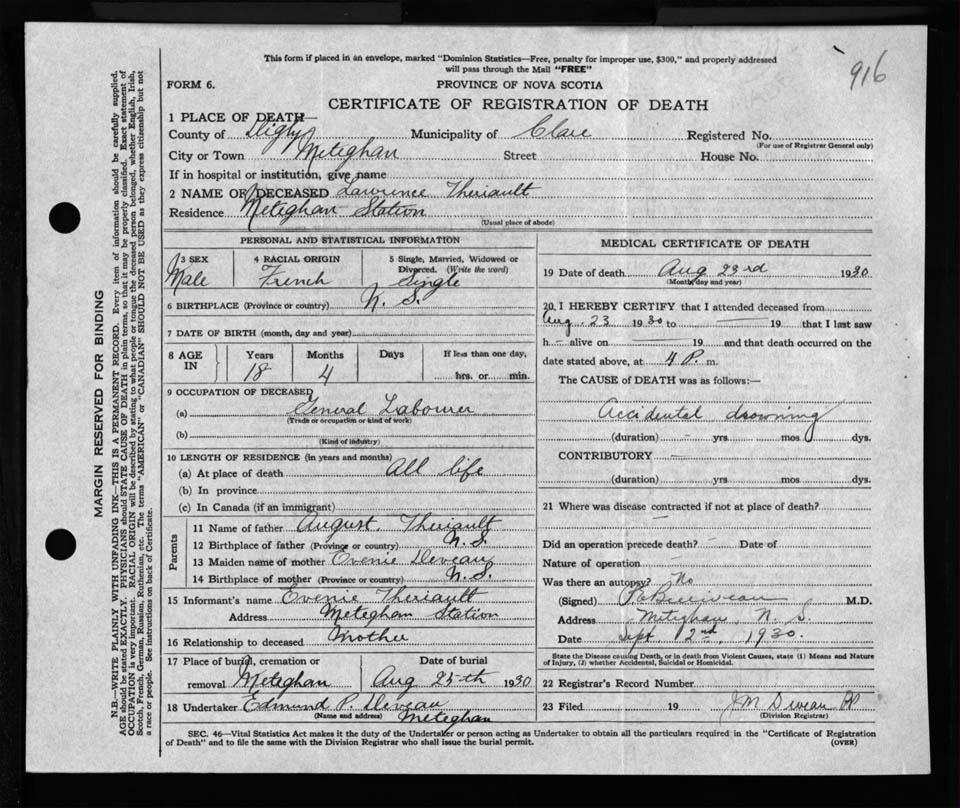 916
This form if placed in an envelope, marked "Dominion Statistics—Free, penalty for improper use, $300," and properly addressed
will pass through the Mail "FREE"
FORM 6.
PROVINCE OF NOVA SCOTIA
CERTIFICATE OF REGISTRATION OF DEATH
1 PLACE OF DEATH—
County of Digby Municipality of Clare Registered No.
(For use of Registrar General only)
City or Town Meteghan Street House No.
If in hospital or institution, give name
2 NAME OF DECEASED Lawrence Theriault
Residence Meteghan Station
(Usual place of abode)
PERSONAL AND STATISTICAL INFORMATION
3 SEX 4 RACIAL ORIGIN 5 Single, Married, Widowed or
Divorced. (Write the word)
Male French Single
6 BIRTHPLACE (Province or country) N. S.
7 DATE OF BIRTH (month, day and year)
8 AGE IN Years Months Days If less than one day,
18 4 hrs. or min.
9 OCCUPATION OF DECEASED
(a) General Labourer
(Trade or occupation or kind of work)
(b)
(Kind of industry)
10 LENGTH OF RESIDENCE (in years and months)
(a) At place of death All life
(b) In province
(c) In Canada (if an immigrant)
Parents
11 Name of father August. Theriault
12 Birthplace of father (Province or country) N. S.
13 Maiden name of mother Evenie Deveau
14 Birthplace of mother (Province or country) N. S.
15 Informant's name Evenie Theriault
Address Meteghan Station
16 Relationship to deceased Mother
17 Place of burial, cremation or Date of burial
removal Meteghan Aug 25th 1930
18 Undertaker Edmund P. Deveau
(Name and address) Meteghan
MEDICAL CERTIFICATE OF DEATH
19 Date of death Aug 23rd 1930
(Month, day and year)
20. I HEREBY CERTIFY that I attended deceased from
Aug. 23 1930 to — 19 that I last saw
h – alive on — 19 and that death occurred on the
date stated above, at 4 P. m.
The CAUSE OF DEATH was as follows:—
Accidental drowning
(duration) – yrs mos dys.
CONTRIBUTORY –
(duration) yrs mos dys.
21 Where was disease contracted if not at place of death?
–
Did an operation precede death? – Date of
Nature of operation –
Was there an autopsy? No
(Signed) M.D.
Address Meteghan, N. S.
Date Sept 2nd, 1930.
State the Disease causing Death, or in death from Violent Causes, state (1) Means and Nature
of Injury, (2) whether Accidental, Suicidal or Homicidal.
22 Registrar's Record Number
23 Filed 19 J M Deveau
(Division Registrar)
SEC. 46—Vital Statistics Act makes it the duty of the Undertaker or person acting as Undertaker to obtain all the particulars required in the "Certificate of Registration
of Death" and to file the same with the Division Registrar who shall issue the burial permit.
(OVER)
MARGIN RESERVED FOR BINDING
N.B.—WRITE PLAINLY WITH UNFADING INK—THIS IS A PERMANENT RECORD. Every item of information should be carefully supplied.
AGE should be stated EXACTLY. PHYSICIANS should STATE CAUSE OF DEATH in plain terms, so that it may be properly classified. Exact statement of
OCCUPATION is very important. RACIAL ORIGIN will be described by stating to what people or tongue the deceased person belonged, whether English, Irish,
Scotch, French, German, Russian, Ruthenian, etc. The terms "AMERICAN" or "CANADIAN" SHOULD NOT BE USED as they express citizenship but not
a race or people. See instructions on back of Certificate.